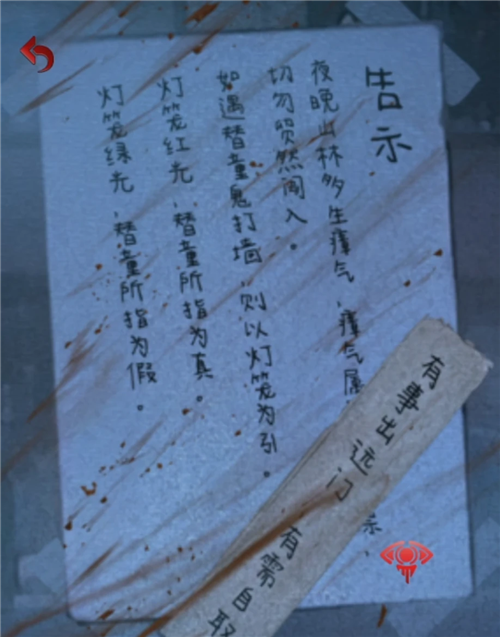 告示
夜晚山林多生瘴气,瘴气属
切勿贸然闯入。
如遇替童鬼打墙,则以灯笼为引。
灯笼红光,替童所指为真。
灯笼绿光,替童所指为假。
有事出远门
有需自取